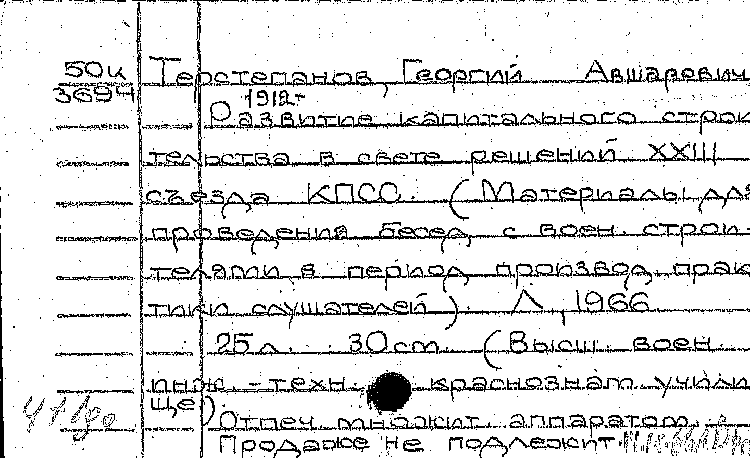 50и Терстепанов, Георгий Авшарович
3694 1912-
Развитие капитального строи
тельства в свете решений XXIII
съезда КПСС. (Материалы для
проведения бесед с воен. строи-
телями в период производ. прак
тики слушателей). Л., 1966
25 л. 30 см. (Высш. воен.
инж.-техн. краснознам. учили
ще)
Отпеч. множит. аппаратом.
Продаже не подлежит.